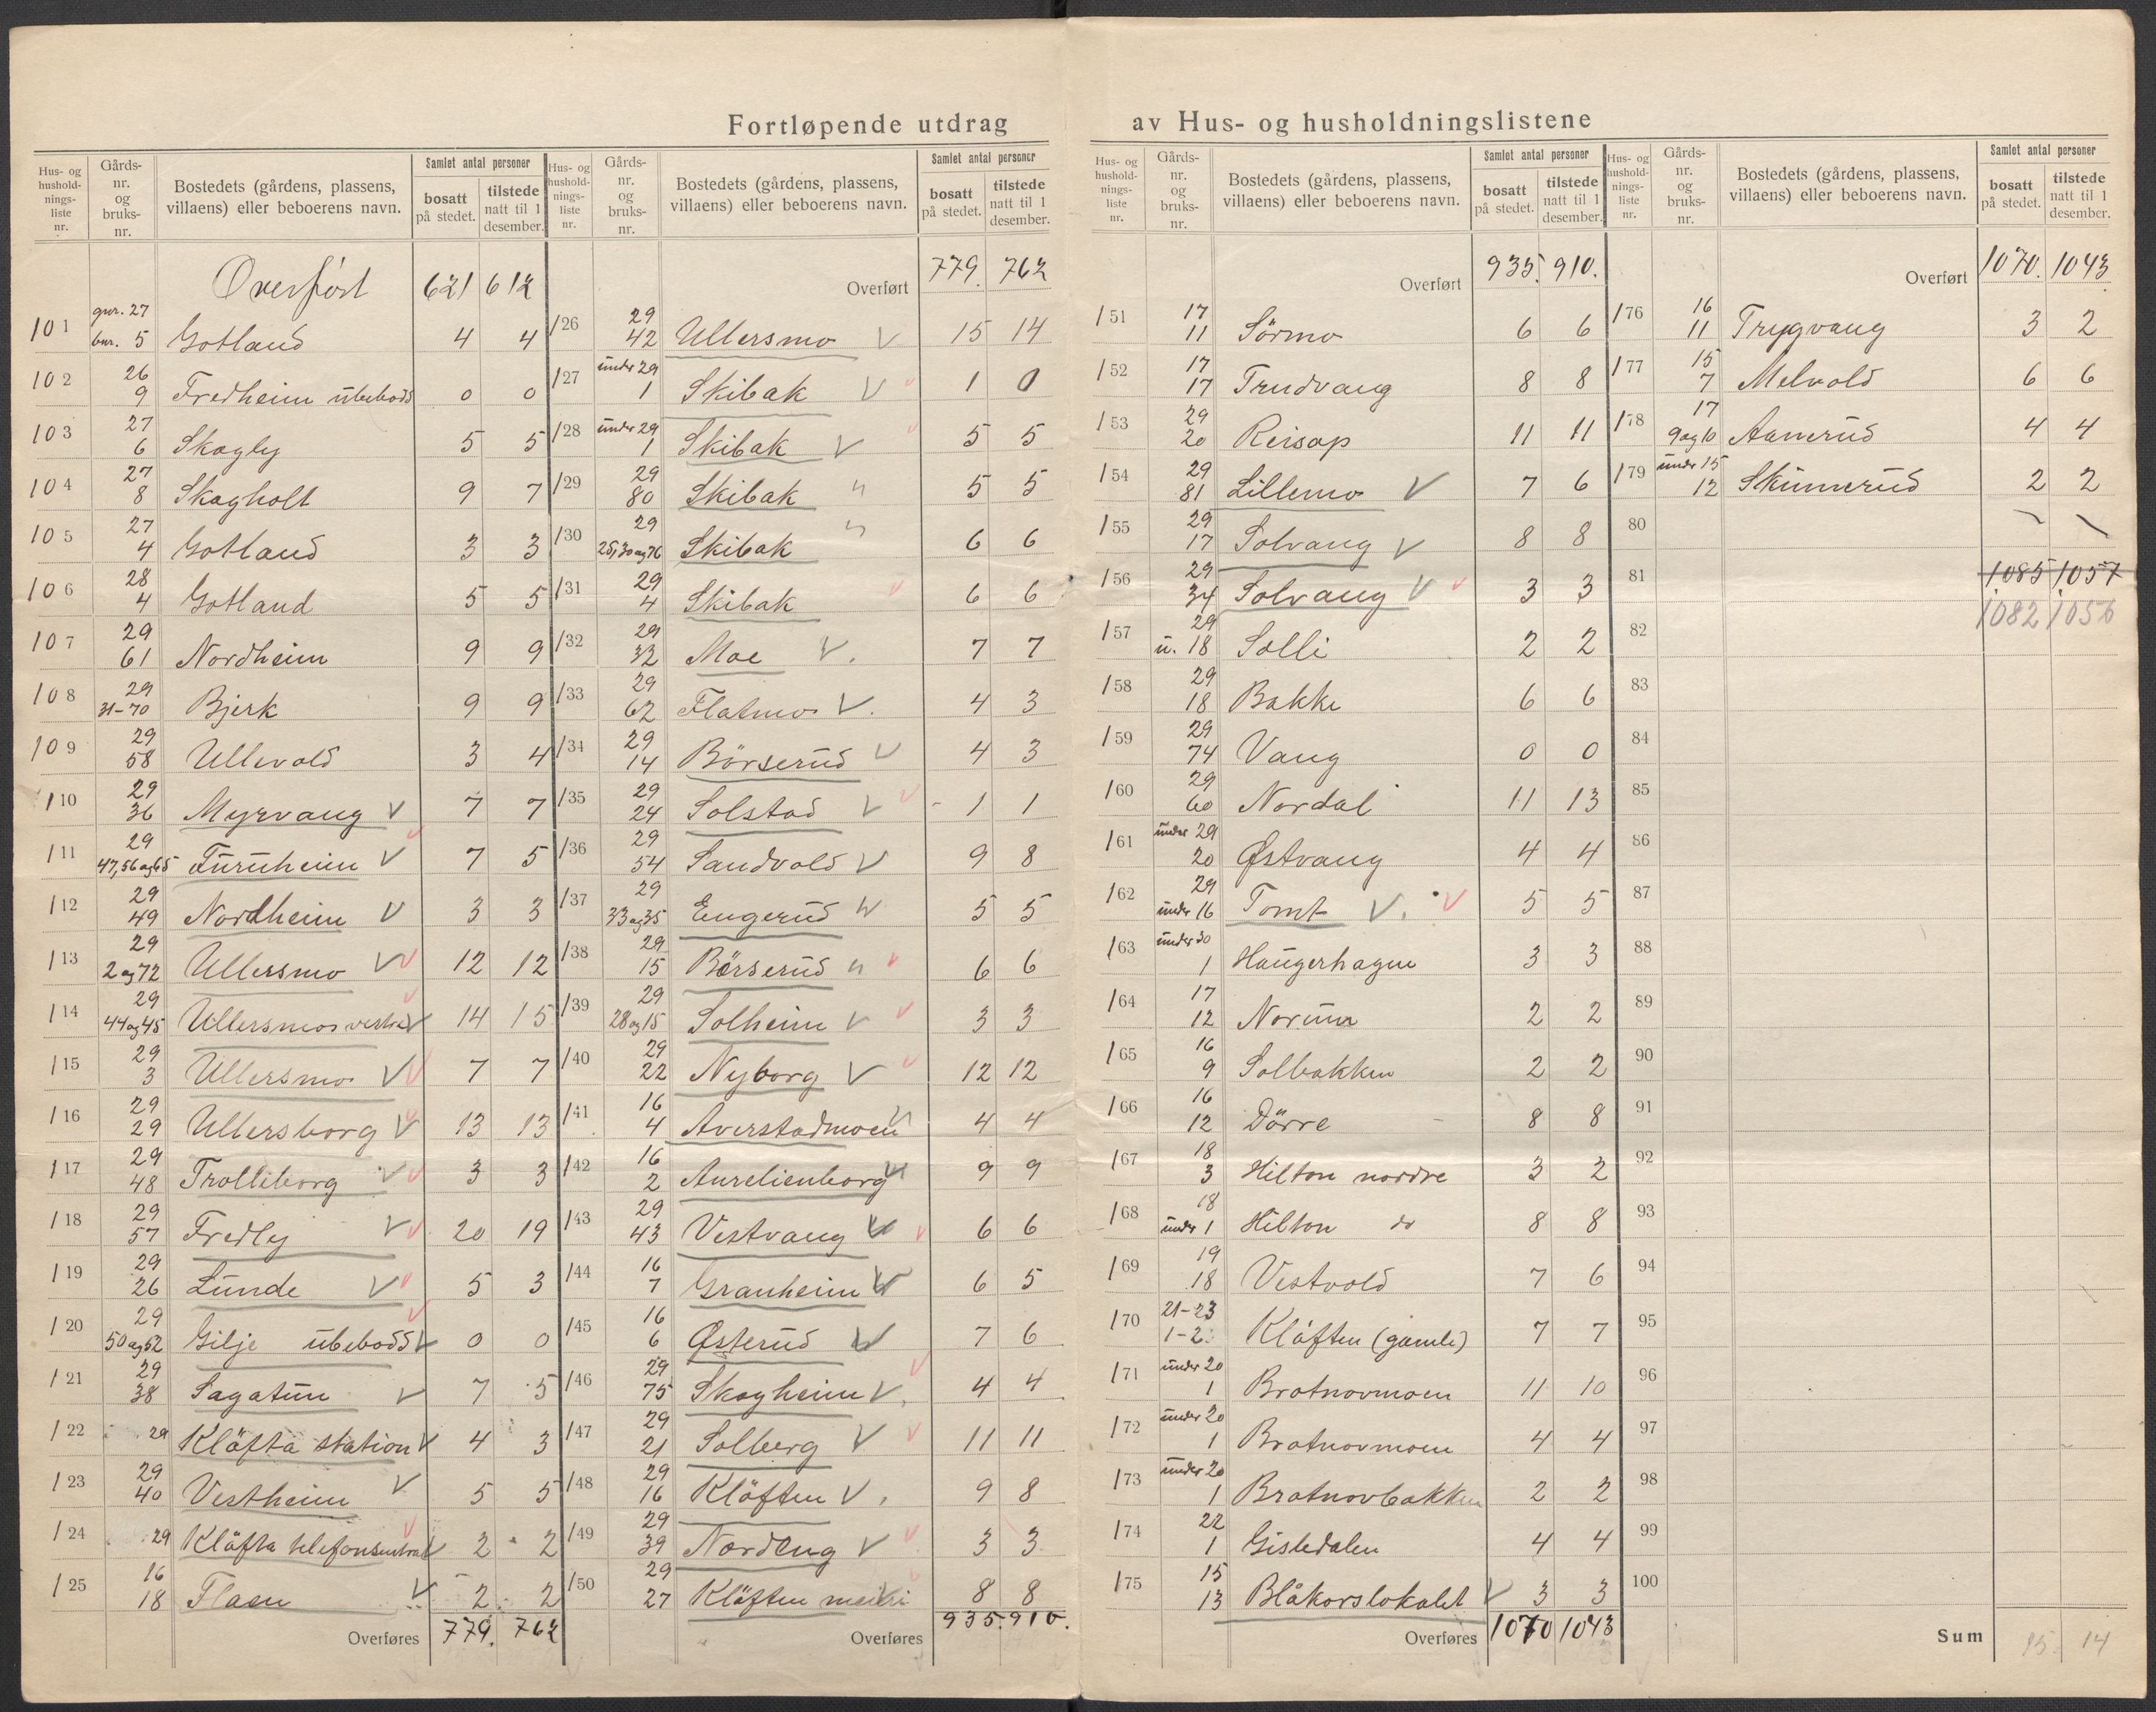 Fortløpende utdrag av Hus- og husholdningslistene
Hus- og husholdnings- liste nr. | Gårds- nr. og bruks- nr. | Bostedets (gårdens, plassens, villaens) eller beboerens navn. | Samlet antal personer | bosatt på stedet. | tilstede natt til 1 desember.
Overført 621 612
101 gnr. 27 bnr. 5 Gotland 4 4
102 26 9 Fredheim ubebodd 0 0
103 27 6 Skogly 5 5
104 27 8 Skogholt 9 7
105 27 4 Gotland 3 3
106 28 4 Gotland 5 5
107 29 61 Nordheim 9 9
108 29 31-70 Bjerk 9 9
109 29 58 Ullevold 3 4
110 29 36 Myrvang V 7 7
111 29 47, 56 og 65 Furuheim V 7 5
112 29 49 Nordheim V 3 3
113 29 2 og 72 Ullersmo V 12 12
114 29 44 og 45 Ullersmo vestre V 14 15
115 29 3 Ullersmo V 7 7
116 29 29 Ullersborg V 13 13
117 29 48 Trolliborg V 3 3
118 29 57 Fredly V 20 19
119 29 26 Lunde V 5 3
120 29 50 og 52 Gilje ubebodd V 0 0
121 29 38 Sagatun V 7 5
122 29 Kløfta station V 4 3
123 29 40 Vestheim V 5 5
124 29 Kløfta telefonsentral V 2 2
125 16 18 Flaen V 2 2
Overføres 779. 762
Hus- og husholdnings- liste nr. | Gårds- nr. og bruks- nr. | Bostedets (gårdens, plassens, villaens) eller beboerens navn. | Samlet antal personer | bosatt på stedet. | tilstede natt til 1 desember.
Overført 779. 762
126 29 42 Ullersmo V 15 14
127 under 29 1 Skibak V 1 0
128 under 29 1 Skibak V 5 5
129 29 80 Skibak 5 5
130 29 25, 30 og 76 Skibak 6 6
131 29 4 Skibak 6 6
132 29 32 Moe V. 7 7
133 29 62 Flatmo V. 4 3
134 29 14 Börserud V 4 3
135 29 24 Solstad V 1 1
136 29 54 Sandvold V 9 8
137 29 33 og 35 Engerud V 5 5
138 29 15 Börserud 6 6
139 29 28 og 15 Solheim V 3 3
140 29 22 Nyborg V 12 12
141 16 4 Averstadmoen 4 4
142 16 2 Aurelienborg 9 9
143 29 43 Vestvang V 6 6
144 16 7 Granheim V 6 5
145 16 6 Østerud V 7 6
146 29 75 Skogheim V. 4 4
147 29 21 Solberg V 11 11
148 29 16 Klöften V. 9 8
149 29 39 Nordeng V 3 3
150 29 27 Klöften meieri 8 8
Overføres 935. 910.
Hus- og husholdnings- liste nr. | Gårds- nr. og bruks- nr. | Bostedets (gårdens, plassens, villaens) eller beboerens navn. | Samlet antal personer | bosatt på stedet. | tilstede natt til 1 desember.
Overført 935. 910.
151 17 11 Sörmo 6 6
152 17 17 Trudvang 8 8
153 29 20 Reisop 11 11
154 29 81 Lillemo V 7 6
155 29 17 Solvang V 8 8
156 29 34 Solvang V 3 3
157 29 u. 18 Solli 2 2
158 29 18 Bakke 6 6
159 29 74 Vang 0 0
160 29 60 Nordal 11 13
161 under 29 20 Østvang 4 4
162 29 under 16 Tomt V. 5 5
163 under 30 1 Haugerhagen 3 3
164 17 12 Norum 2 2
165 16 9 Solbakken 2 2
166 16 12 Dörre 8 8
167 18 3 Hilton nordre 3 2
168 18 under 1 Hilton do 8 8
169 19 18 Vestvold 7 6
170 21-23 1-2 Klöften (gamle) 7 7
171 under 20 1 Brotnovmoen 11 10
172 under 20 1 Brotnovmoen 4 4
173 under 20 1 Brotnovbakken 2 2
174 22 1 Gisledalen 4 4
175 15 13 Blåkorslokalet V 3 3
Overføres 1070 1043
Hus- og husholdnings- liste nr. | Gårds- nr. og bruks- nr. | Bostedets (gårdens, plassens, villaens) eller beboerens navn. | Samlet antal personer | bosatt på stedet. | tilstede natt til 1 desember.
Overført 1070. 1043
176 16 11 Trygvang 3 2
177 15 7 Melvold 6 6
178 17 9 og 10 Aamerud 4 4
179 under 15 12 Skunnerud 2 2
80
81 1085 1057
1082 1056
82
83
84
85
86
87
88
89
90
91
92
93
94
95
96
97
98
99
100
Sum 15 14